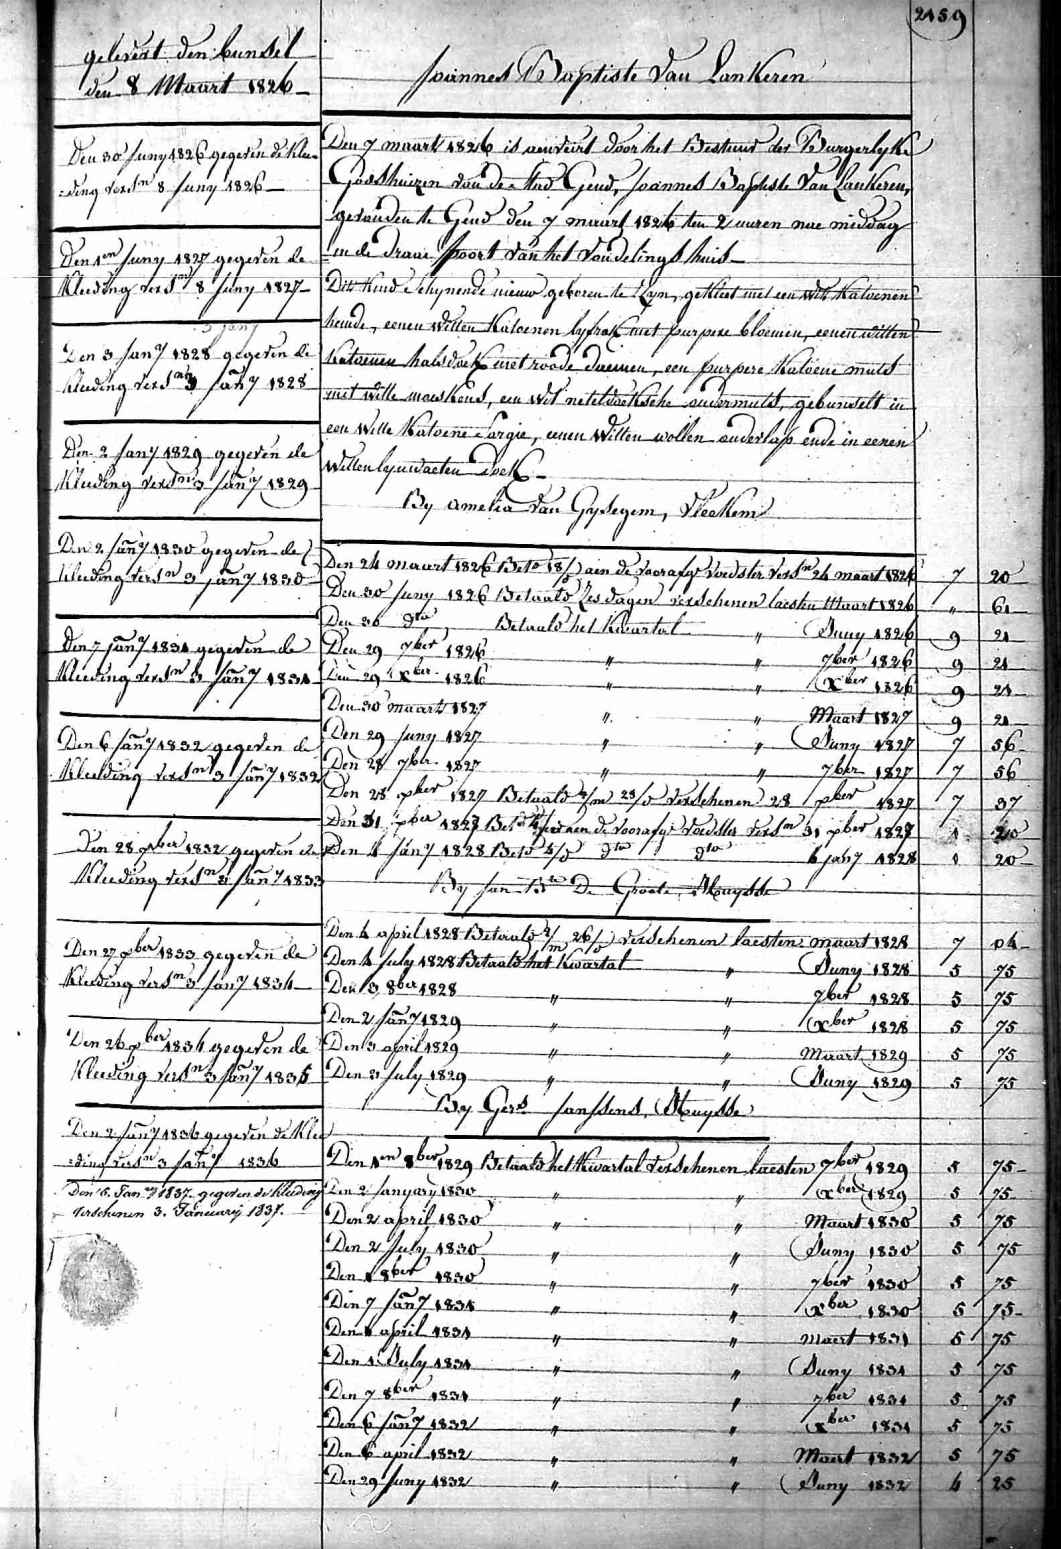 2159
gelevert den bunsel
den 8 Maart 1826
Den 30 Juny 1826 gegeven de Klee-
=ding versn 8 Juny 1826
Den 1en Juny 1827 gegeven de
Kleeding versn 8 Juny 1827
3 Jany
Den 3 Jany 1828 gegeven de
Kleeding versn 3 Jany 1828
Den 2 Jany 1829 gegeven de
Kleeding versn 3 Jany 1829
Den 2 Jany 1830 gegeven de
Kleeding versn 3 Jany 1830
Den 7 Jany 1831 gegeven de
Kleeding versn 3 Jany 1831
Den 6 Jany 1832 gegeven de
Kleeding versn 3 Jany 1832
Den 28 xber 1832 gegeven de
Kleeding versn 3 Jany 1833
Den 27 xber 1833 gegeven de
Kleeding versn 3 Jany 1834
Den 26 xber 1834 gegeven de
Kleeding versn 3 Jany 1835
Den 2 Jany 1836 gegeven de Klee
=ding versn 3 Jany 1836
Den 5 Jany 1837 gegeven de Kleeding
verschenen 3 January 1837.
Joannes Baptiste Van Lankeren
Den 7 maart 1826 is aenveirt door het Bestuur der Burgerlyke
Godshuizen van de Stad Gend, Joannes Baptiste Van Lankeren,
gevonden te Gend den 7 maart 1826 ten 2 uuren nae middag
in de draai poort van het vondelingshuis
Dit Kind schynende nieuw geboren te zyn, gekleet met een wit Katoenen
hemde, eenen witten Katoenen lyfrok met purpere bloemen, eenen witten
Katoenen halsdoek met roode, een purpere Katoene muts
met witte, een wit neteldoeksche ondermuts, gebunselt in
een witte Katoene sargie, eenen witten wollen onderlap ende in eenen
witten lynwaeten doek
By Amelia van Gysegem, Vleekem
Den 24 maart 1826 Bet 18/ aen de voorafge voedster versn 24 maart 1826 7 20
Den 30 Juny 1826 Betaald zes dagen verschenen laesten Maart 1826 " 61
Den 30 dto Betaald het Kwartal " Juny 1826 9 21
Den 29 7ber 1826 " " 7ber 1826 9 21
Den 29 xber 1826 " " xber 1826 9 21
Den 30 maart 1827 " " Maart 1827 9 21
Den 29 Juny 1827 " " Juny 1827 7 56
Den 28 7ber 1827 " " 7ber 1827 7 56
Den 28 xber 1827 Betaald 2/m 28/d verschenen 28 xber 1827 7 37
Den 31 xber 1827 aen de voorafge voedster versn 31 xber 1827 1 20
Den 4 Jany 1828 Bet 4/d dto dto 4 Jany 1828 1 20
By Jan Bte De Groote, Huysse
Den 4 april 1828 Betaald 2/m 26/d verschenen laesten maart 1828 7 04
Den 4 July 1828 Betaald het Kwartal " Juny 1828 5 75
Den 3 8ber 1828 " " 7ber 1828 5 75
Den 2 Jany 1829 " " xber 1828 5 75
Den 3 april 1829 " " Maart 1829 5 75
Den 3 July 1829 " " Juny 1829 5 75
By Gers Janssens, Huysse
Den 1en 8ber 1829 Betaald het Kwartal verschenen laesten 7ber 1829 5 75
Den 2 January 1830 " " xber 1829 5 75
Den 2 april 1830 " " Maart 1830 5 75
Den 2 July 1830 " " Juny 1830 5 75
Den 1 8ber 1830 " " 7ber 1830 5 75
Den 7 Jany 1831 " " xber 1830 5 75
Den 1 april 1831 " " maert 1831 5 75
Den 1 July 1831 " " Juny 1831 5 75
Den 7 8ber 1831 " " 7ber 1831 5 75
Den 6 Jany 1832 " " xber 1831 5 75
Den 6 april 1832 " " Maert 1832 5 75
Den 29 Juny 1832 " " Juny 1832 4 25